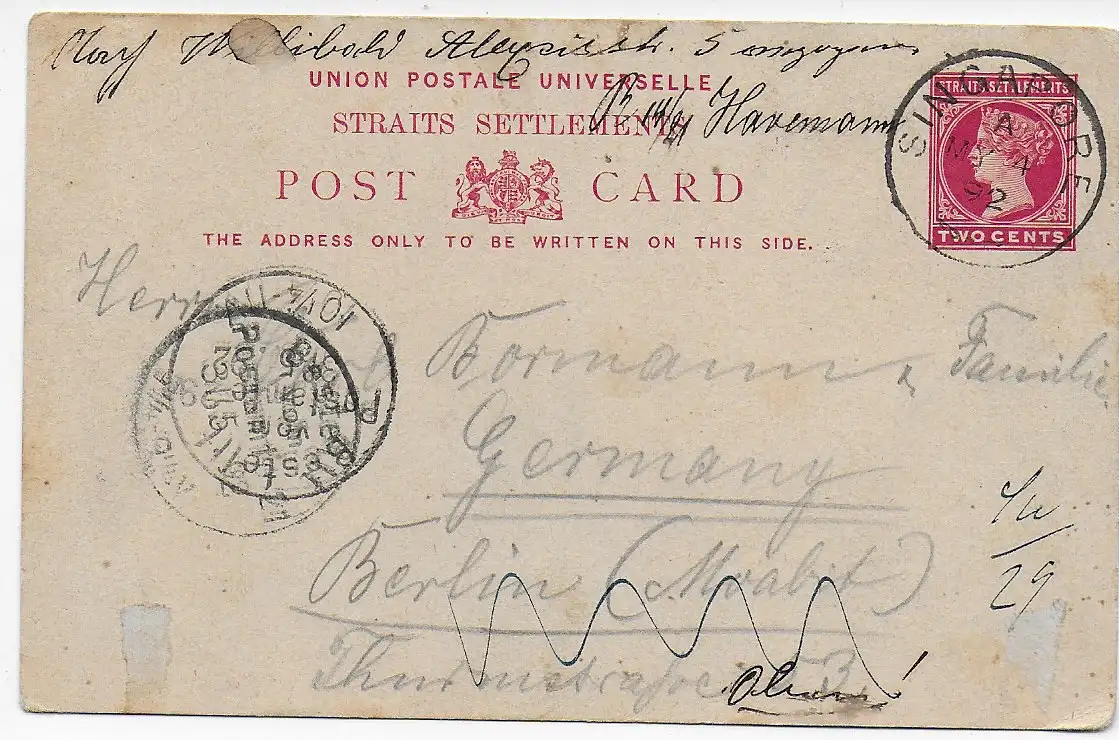 Nach Willibald Alexisstr. 5 umgezogen
UNION POSTALE UNIVERSELLE
STRAITS SETTLEMENTS
Havemann
POST CARD
THE ADDRESS ONLY TO BE WRITTEN ON THIS SIDE.
STRAITS SETTLEMENTS
TWO CENTS
SINGAPORE
A
MY 4
92
Herrn
Bormann u. Familie
Germany
Berlin (Moabit)
Thurmstrasse 53.
Oben!
29
10¼-11